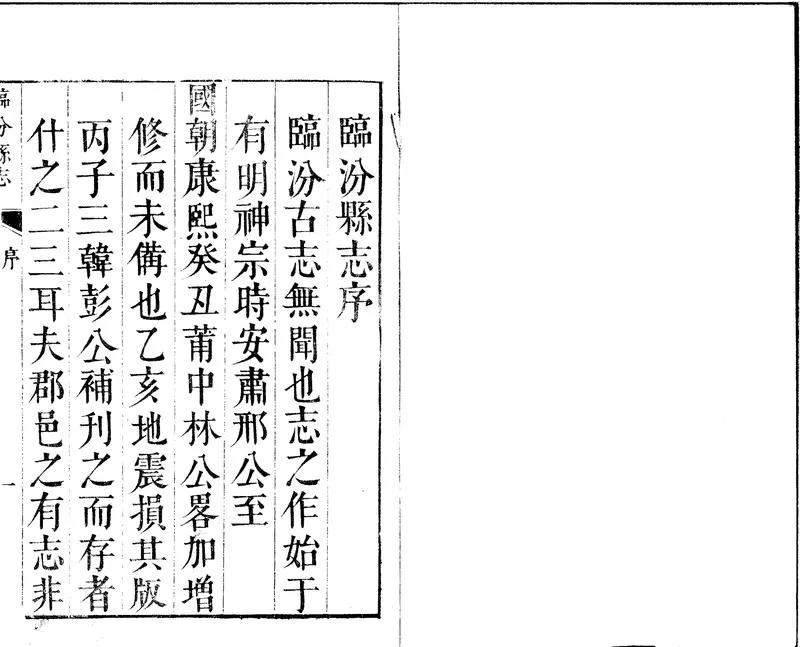 臨汾縣志序
臨汾古志無聞也志之作始于
有明神宗時安肅邢公至
國朝康熙癸丑莆中林公畧加增
修而未備也乙亥地震損其版
丙子三韓彭公補刊之而存者
什之二三耳夫郡邑之有志非
臨汾縣志
序
一